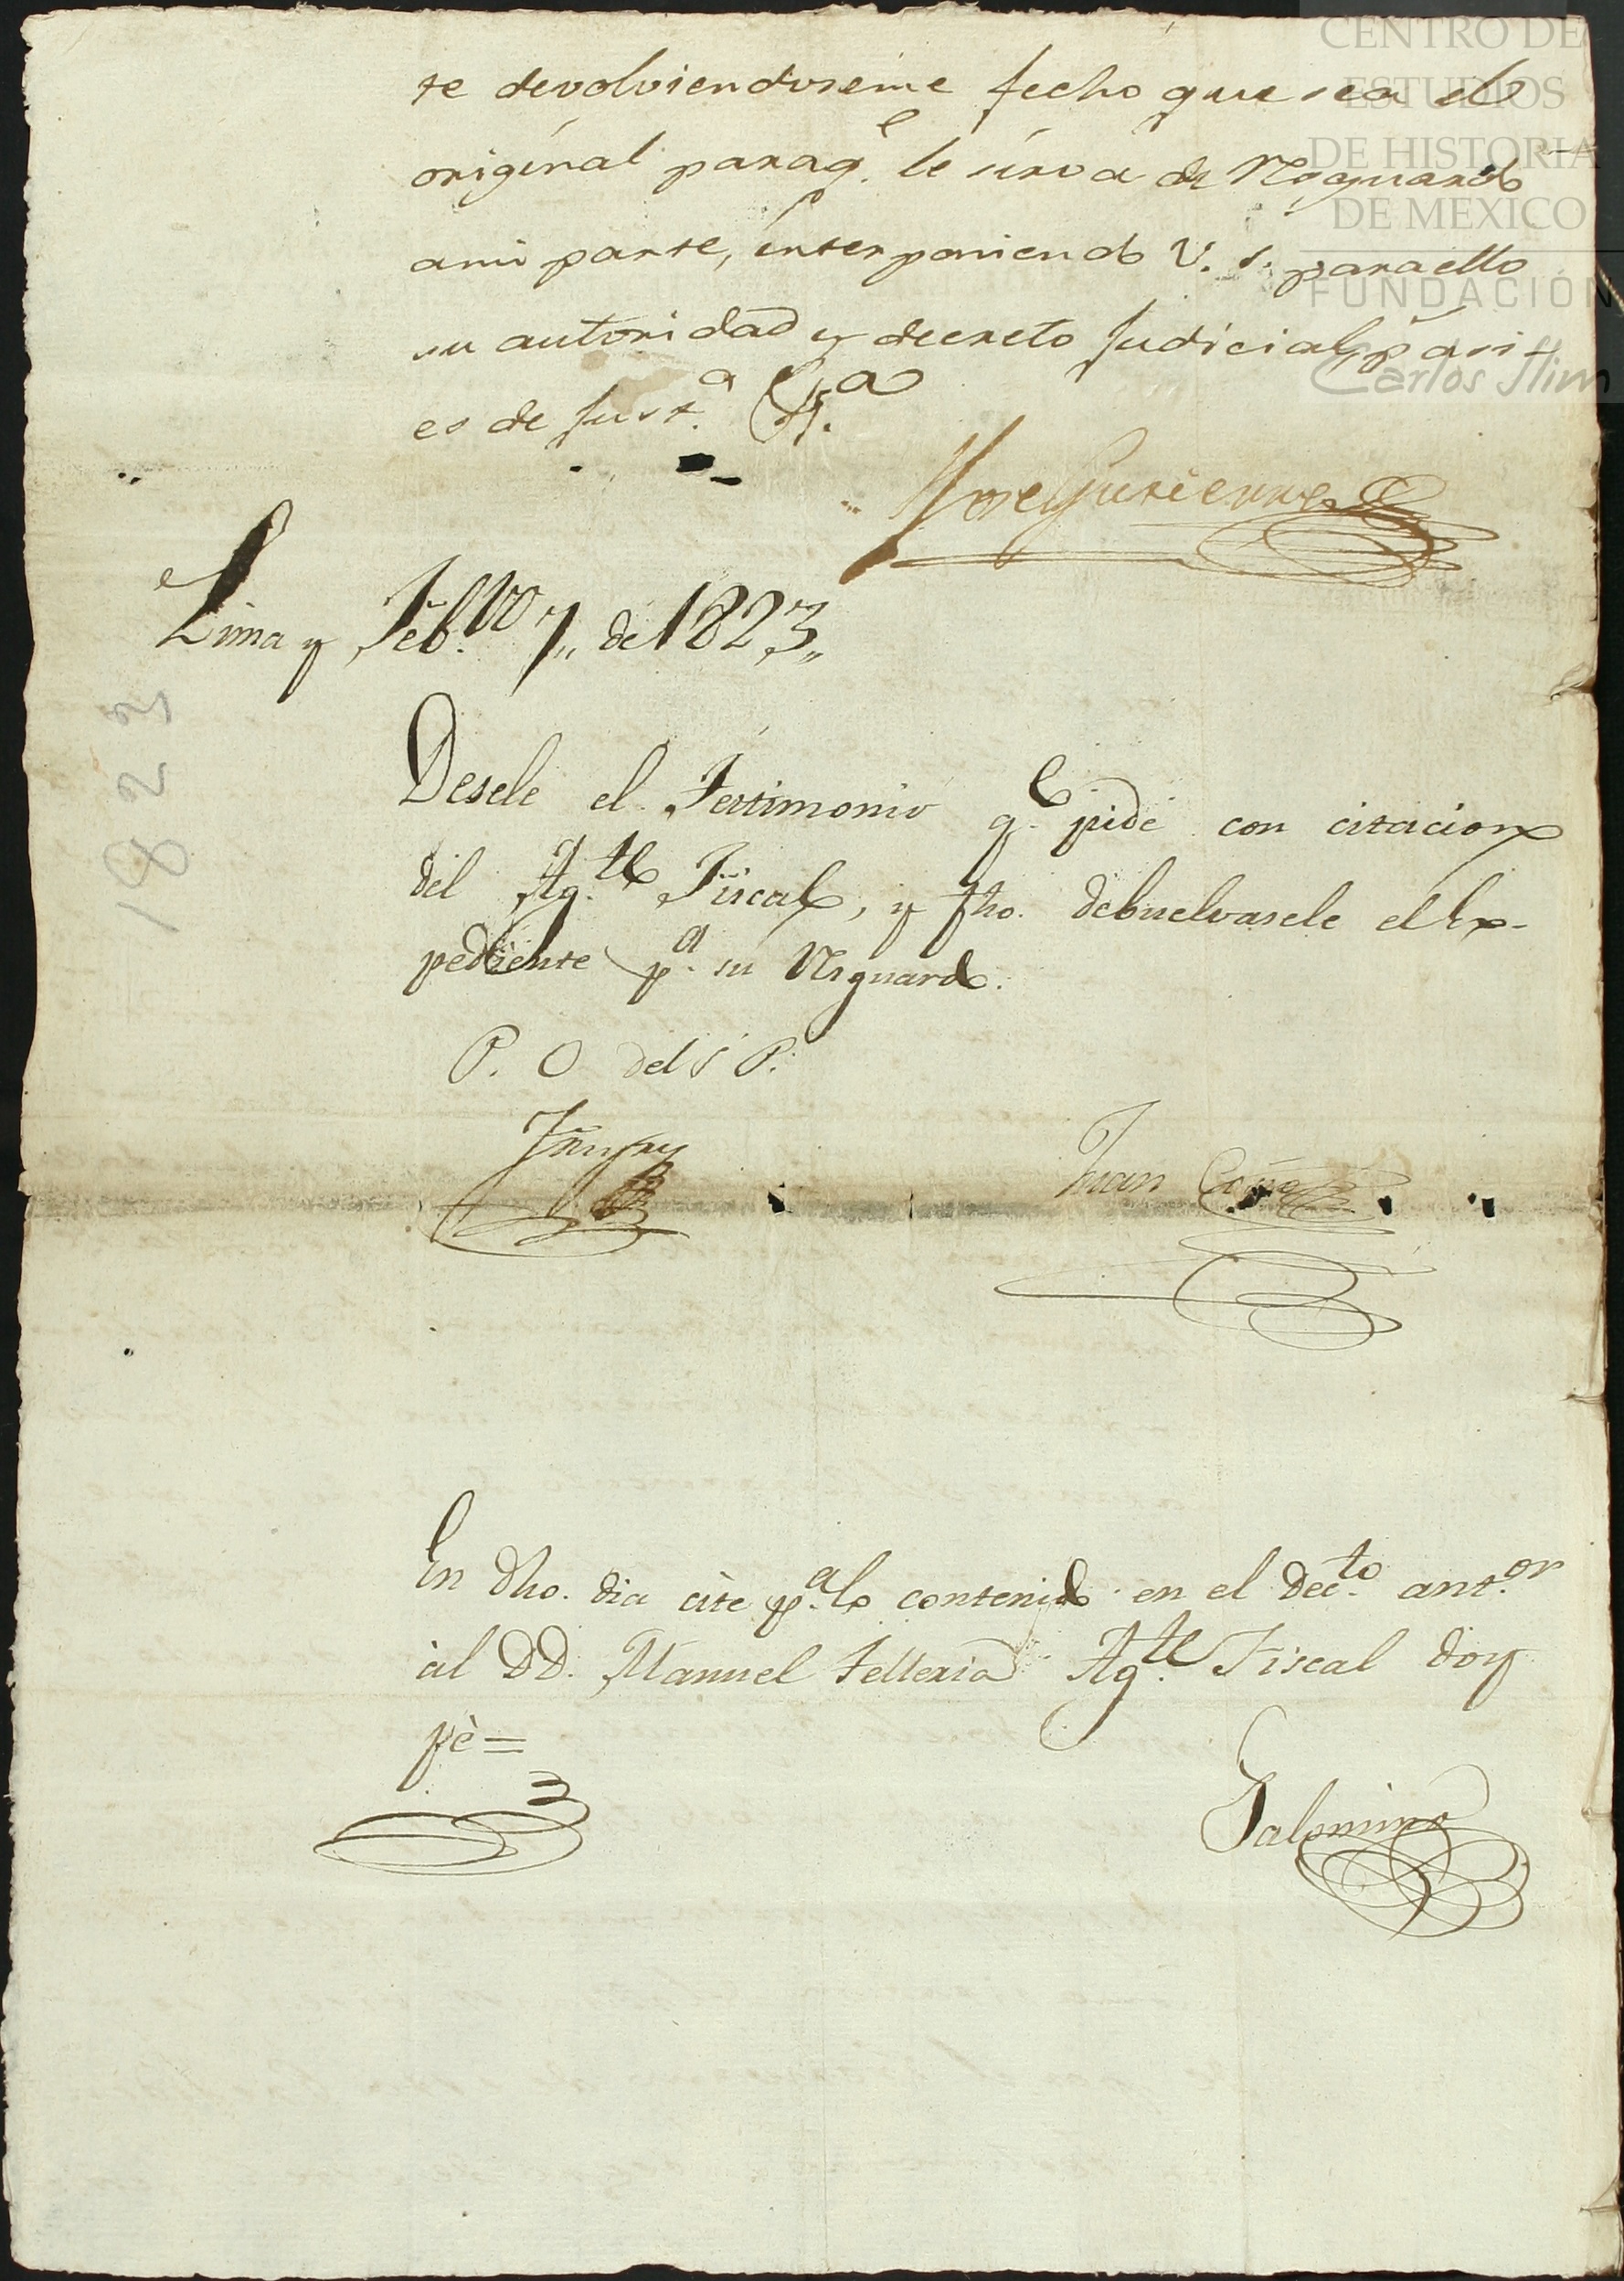 CENTRO DE
ESTUDIOS
DE HISTORIA
DE MEXICO
FUNDACIÓN
Carlos Slim
te devolviendoseme fecho que sea el
original paraq.e le sirva de Resguardo
ami parte, interponiendo V. S. paraello
su autoridad y decreto Judicial, p.r asi
es de Just.a &.a
Jose Gutierrez
Lima y Feb.ro 7,, de 1823,,
1823
Desele el Testimonio q.e pide con citacion
del Ag.te Fiscal, y fho. debuelvasele el Ex-
pediente p.a su Resguardo.
P. O del S P.
Juan
En dho. dia cite p.a lo contenido en el Dec.to ant.or
al DD. Manuel Telleria Ag.te Fiscal doy
fè=
Palomino